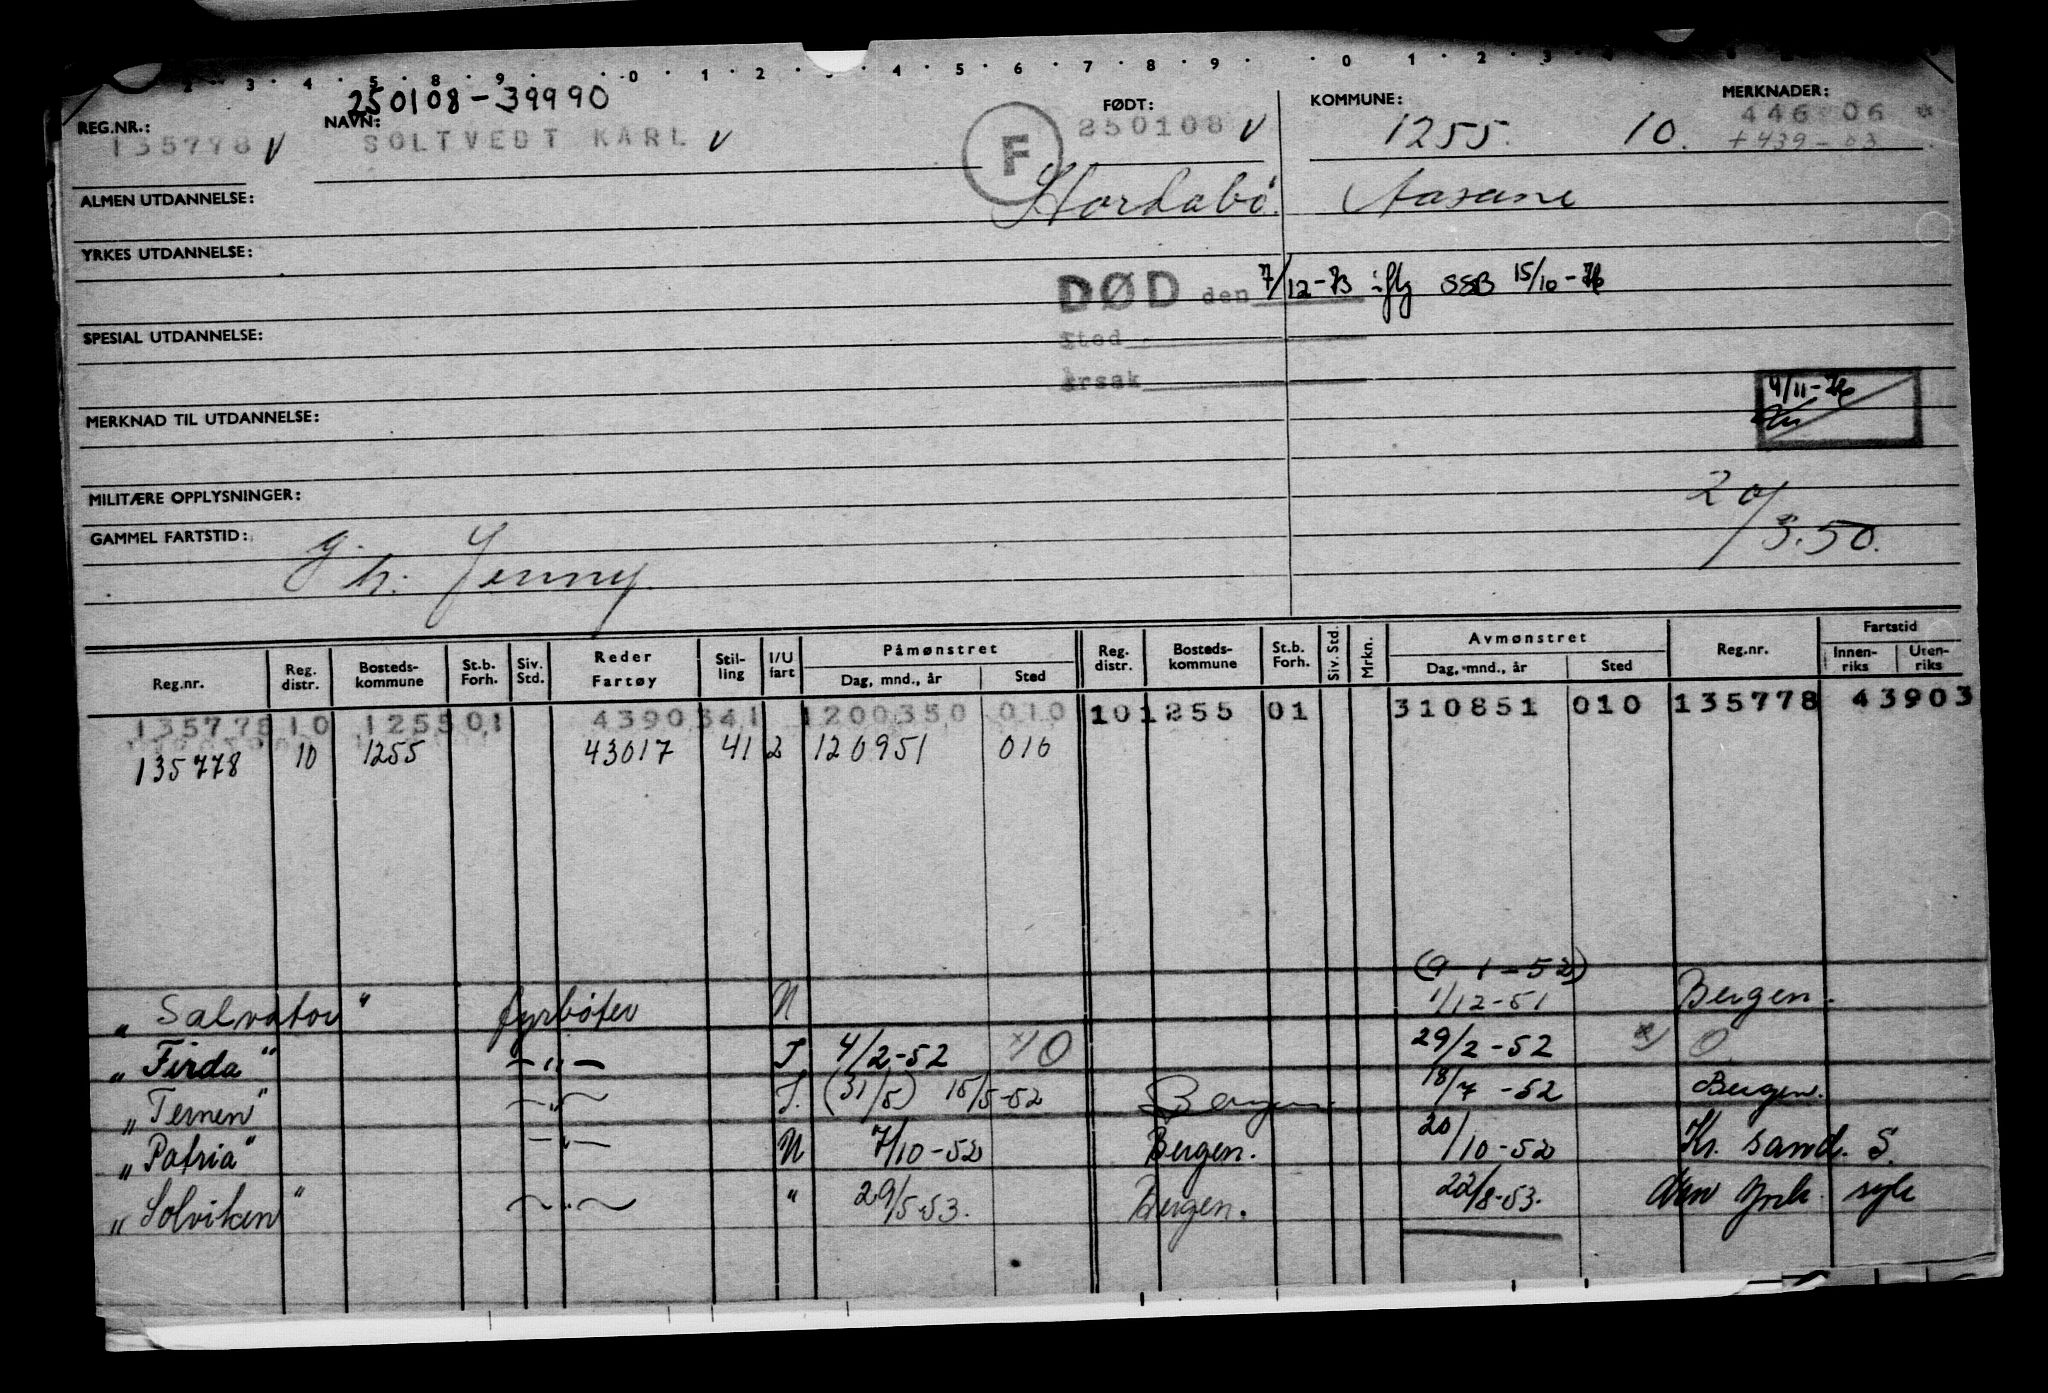 2 · 3 · 4 · 5 · 8 · 9 · · 0 · 1 · 2 · · 4 · 5 · 6 · 7 · 8 · 9 · · 0 · 1 · 2 · 3
250108-39990
REG.NR.: NAVN: FØDT: KOMMUNE: MERKNADER:
135778 V SOLTVEDT KARL V F 250108 V 1255. 10. 446 06 *
+439-03
ALMEN UTDANNELSE: Hordabö. Aasane
YRKES UTDANNELSE:
DØD den 7/12-73 iflg SSB 15/10-76
SPESIAL UTDANNELSE: Sted
Årsak
4/11-76
MERKNAD TIL UTDANNELSE:
MILITÆRE OPPLYSNINGER:
20/3.50.
GAMMEL FARTSTID: g. h. Jenny
Reg.nr. Reg. distr. Bosteds-kommune St.b. Forh. Siv. Std. Reder Fartøy Stil-ling I/U fart Påmønstret Dag, mnd., år Sted Reg. distr. Bosteds-kommune St.b. Forh. Siv. Std. Mrkn. Avmønstret Dag, mnd., år Sted Reg.nr. Fartstid Innen-riks Uten-riks
135778 10 1255 01 43903 41 1 200350 010 10 1255 01 310851 010 135778 43903
135778 10 1255 43017 41 2 120951 010
(9-1-52)
"Salvator" fyrbøter U 1/12-51 Bergen.
"Firda" -"- I 4/2-52 x) O 29/2-52 x) O
"Ternen" -"- I. (31/5) 15/5-52 Bergen 18/7-52 Bergen.
"Patria" -"- U 7/10-52 Bergen. 20/10-52 Kr. sand. S.
"Solviken" -"- " 29/5-53. Bergen. 22/8-53.